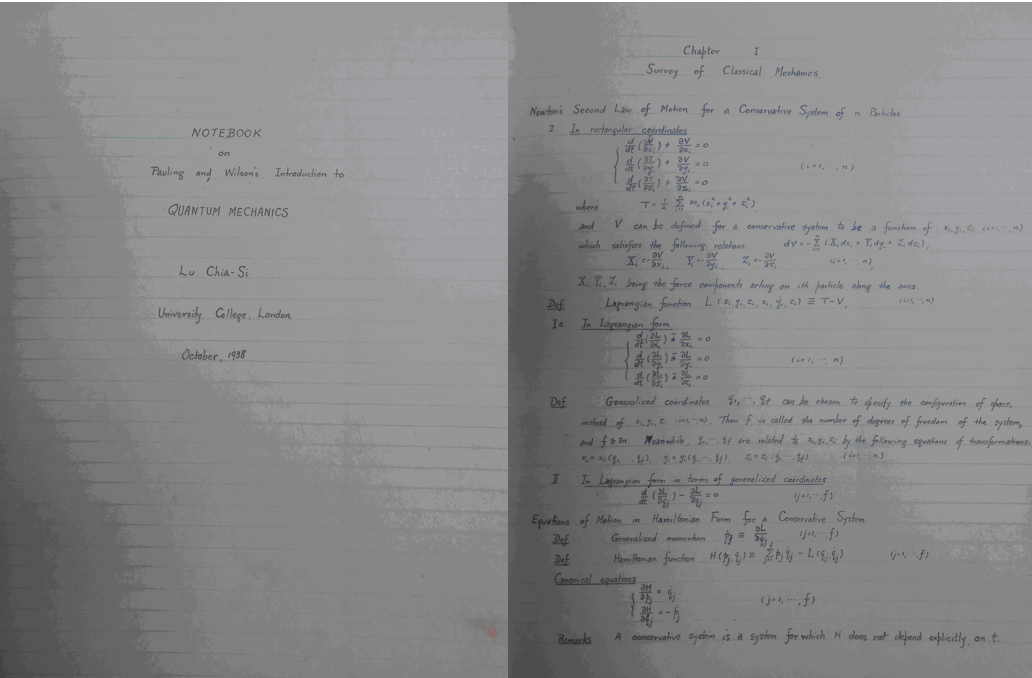 NOTEBOOK
on
Pauling and Wilson's Introduction to
QUANTUM MECHANICS
Lu Chia-Si
University College, London
October, 1938
Chapter I
Survey of Classical Mechanics
Newton's Second Law of Motion for a Conservative System of n Particles
I. In rectangular coordinates
d/dt (∂T/∂ẋᵢ) + ∂V/∂xᵢ = 0
d/dt (∂T/∂ẏᵢ) + ∂V/∂yᵢ = 0 (i=1, ⋯, n)
d/dt (∂T/∂żᵢ) + ∂V/∂zᵢ = 0
where T = ½ Σ mᵢ(ẋᵢ² + ẏᵢ² + żᵢ²)
and V can be defined for a conservative system to be a function of xᵢ, yᵢ, zᵢ (i=1, ⋯, n)
which satisfies the following relations. dV = - Σ (Xᵢdxᵢ + Yᵢdyᵢ + Zᵢdzᵢ),
Xᵢ = -∂V/∂xᵢ, Yᵢ = -∂V/∂yᵢ, Zᵢ = -∂V/∂zᵢ (i=1, ⋯, n),
Xᵢ, Yᵢ, Zᵢ being the force components acting on ith particle along the axes.
Def Lagrangian function L (xᵢ, yᵢ, zᵢ, ẋᵢ, ẏᵢ, żᵢ) ≡ T-V, (i=1, ⋯, n)
Ia. In Lagrangian form
d/dt (∂L/∂ẋᵢ) - ∂L/∂xᵢ = 0
d/dt (∂L/∂ẏᵢ) - ∂L/∂yᵢ = 0 (i=1, ⋯, n)
d/dt (∂L/∂żᵢ) - ∂L/∂zᵢ = 0
Def Generalised coordinates q₁, ⋯, qf can be chosen to specify the configuration of space,
instead of xᵢ, yᵢ, zᵢ (i=1, ⋯, n). Then f is called the number of degrees of freedom of the system,
and f 3n. Meanwhile, q₁, ⋯, qf are related to xᵢ, yᵢ, zᵢ by the following equations of transformations.
xᵢ = xᵢ(q₁, ⋯, qf), yᵢ = yᵢ(q₁, ⋯, qf), zᵢ = zᵢ(q₁, ⋯, qf) (i=1, ⋯, n)
II In Lagrangian form in terms of generalized coordinates
d/dt (∂L/∂q̇ⱼ) - ∂L/∂qⱼ = 0 (j=1, ⋯, f)
Equations of Motion in Hamiltonian Form for a Conservative System
Def Generalised momentum pⱼ ≡ ∂L/∂q̇ⱼ (j=1, ⋯, f)
Def Hamiltonian function H(pⱼ, qⱼ) ≡ Σ pⱼq̇ⱼ - L(qⱼ, q̇ⱼ) (j=1, ⋯, f)
Canonical equations
∂H/∂pⱼ = q̇ⱼ
(j=1, ⋯, f)
∂H/∂qⱼ = -ṗⱼ
Remarks A conservative system is a system for which H does not depend explicitly on t.